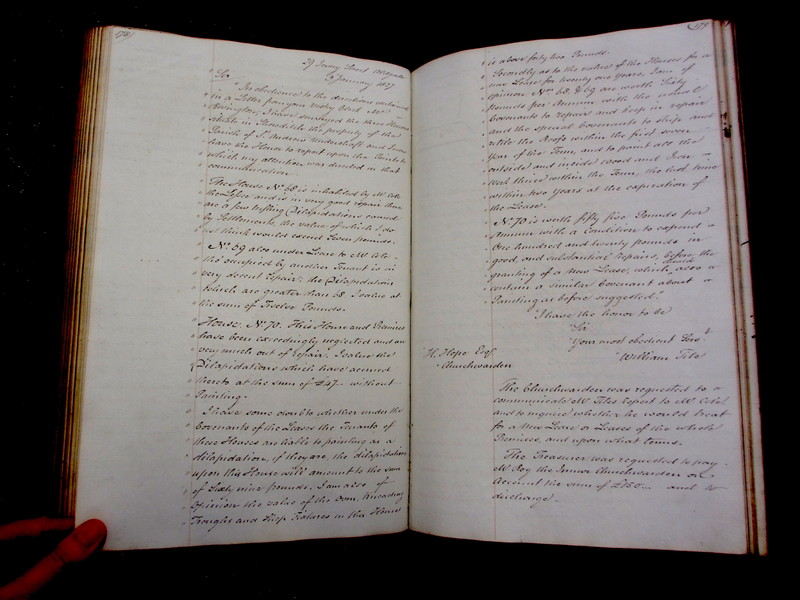 178
29 Jewry Street Aldgate
6 January 1827
Sir
In obedience to the directions contained
in a Letter from your Vestry Clerk Mr
I have surveyed the three Houses
situate in Houndsditch the property of the
Parish of St. Andrew Undershaft and I now
have the Honor to report upon the Points to
which my attention was directed in that
communication.
The House No. 68 is inhabited by Mr Cole
the Lessee and is in very good repair there
are a few trifling Dilapidations caused
by Settlements, the value of which I do
not think would exceed Seven pounds.
No. 69 also under Lease to Mr Cole
tho' occupied by another Tenant is in
very decent repair. the Dilapidations
which are greater than 68 I value at
the sum of Twelve Pounds.
House No. 70. This House and Premises
have been exceedingly neglected and are
very much out of repair. I value the
Dilapidations which have accrued
thereto at the sum of £47 without
Painting.
I have some doubt to whether under the
Covenants of the Leases the Tenants of
these Houses are liable to painting as a
dilapidation, if they are, the dilapidation
upon this House will amount to the sum
of Sixty nine pounds. I am also of
Opinion the value of the Oven, Kneading
Troughs and Shop Fixtures in this House
179
is above forty two Pounds.
Secondly as to the value of the Houses for a
new Lease for twenty one Years, I am of
opinion Nos. 68 & 69 are worth Sixty
pounds per Annum with the usual
Covenants to repair and keep in repair
and the special Covenants to strip and
retile the Roofs within the first seven
Year of the Term, and to paint all the
outside and inside wood and Iron
work thrice within the Term, the last time
within two Years at the expiration of
the Lease.
No. 70 is worth fifty five Pounds per
Annum with a Condition to expend
One hundred and twenty pounds in
good and substantial repairs, before the
granting of a new Lease, which should also
contain a similar Covenant about
Painting as before suggested.
I have the honor to be
Sir
Your most obedient Servt.
William Tite
H. Hope Esqr.
Churchwarden
The Churchwarden was requested to
communicate Mr Tites report to Mr Cole
and to inquire whether he would treat
for a New Lease or Leases of the whole
Premises, and upon what terms.
The Treasurer was requested to pay
Mr Roy the Junior Churchwarden on
Account the sum of £150 and to
discharge.